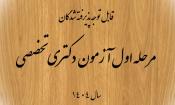 قابل توجه پذیرفته شدگان
مرحله اول آزمون دکتری تخصصی
سال ۱۴۰۴